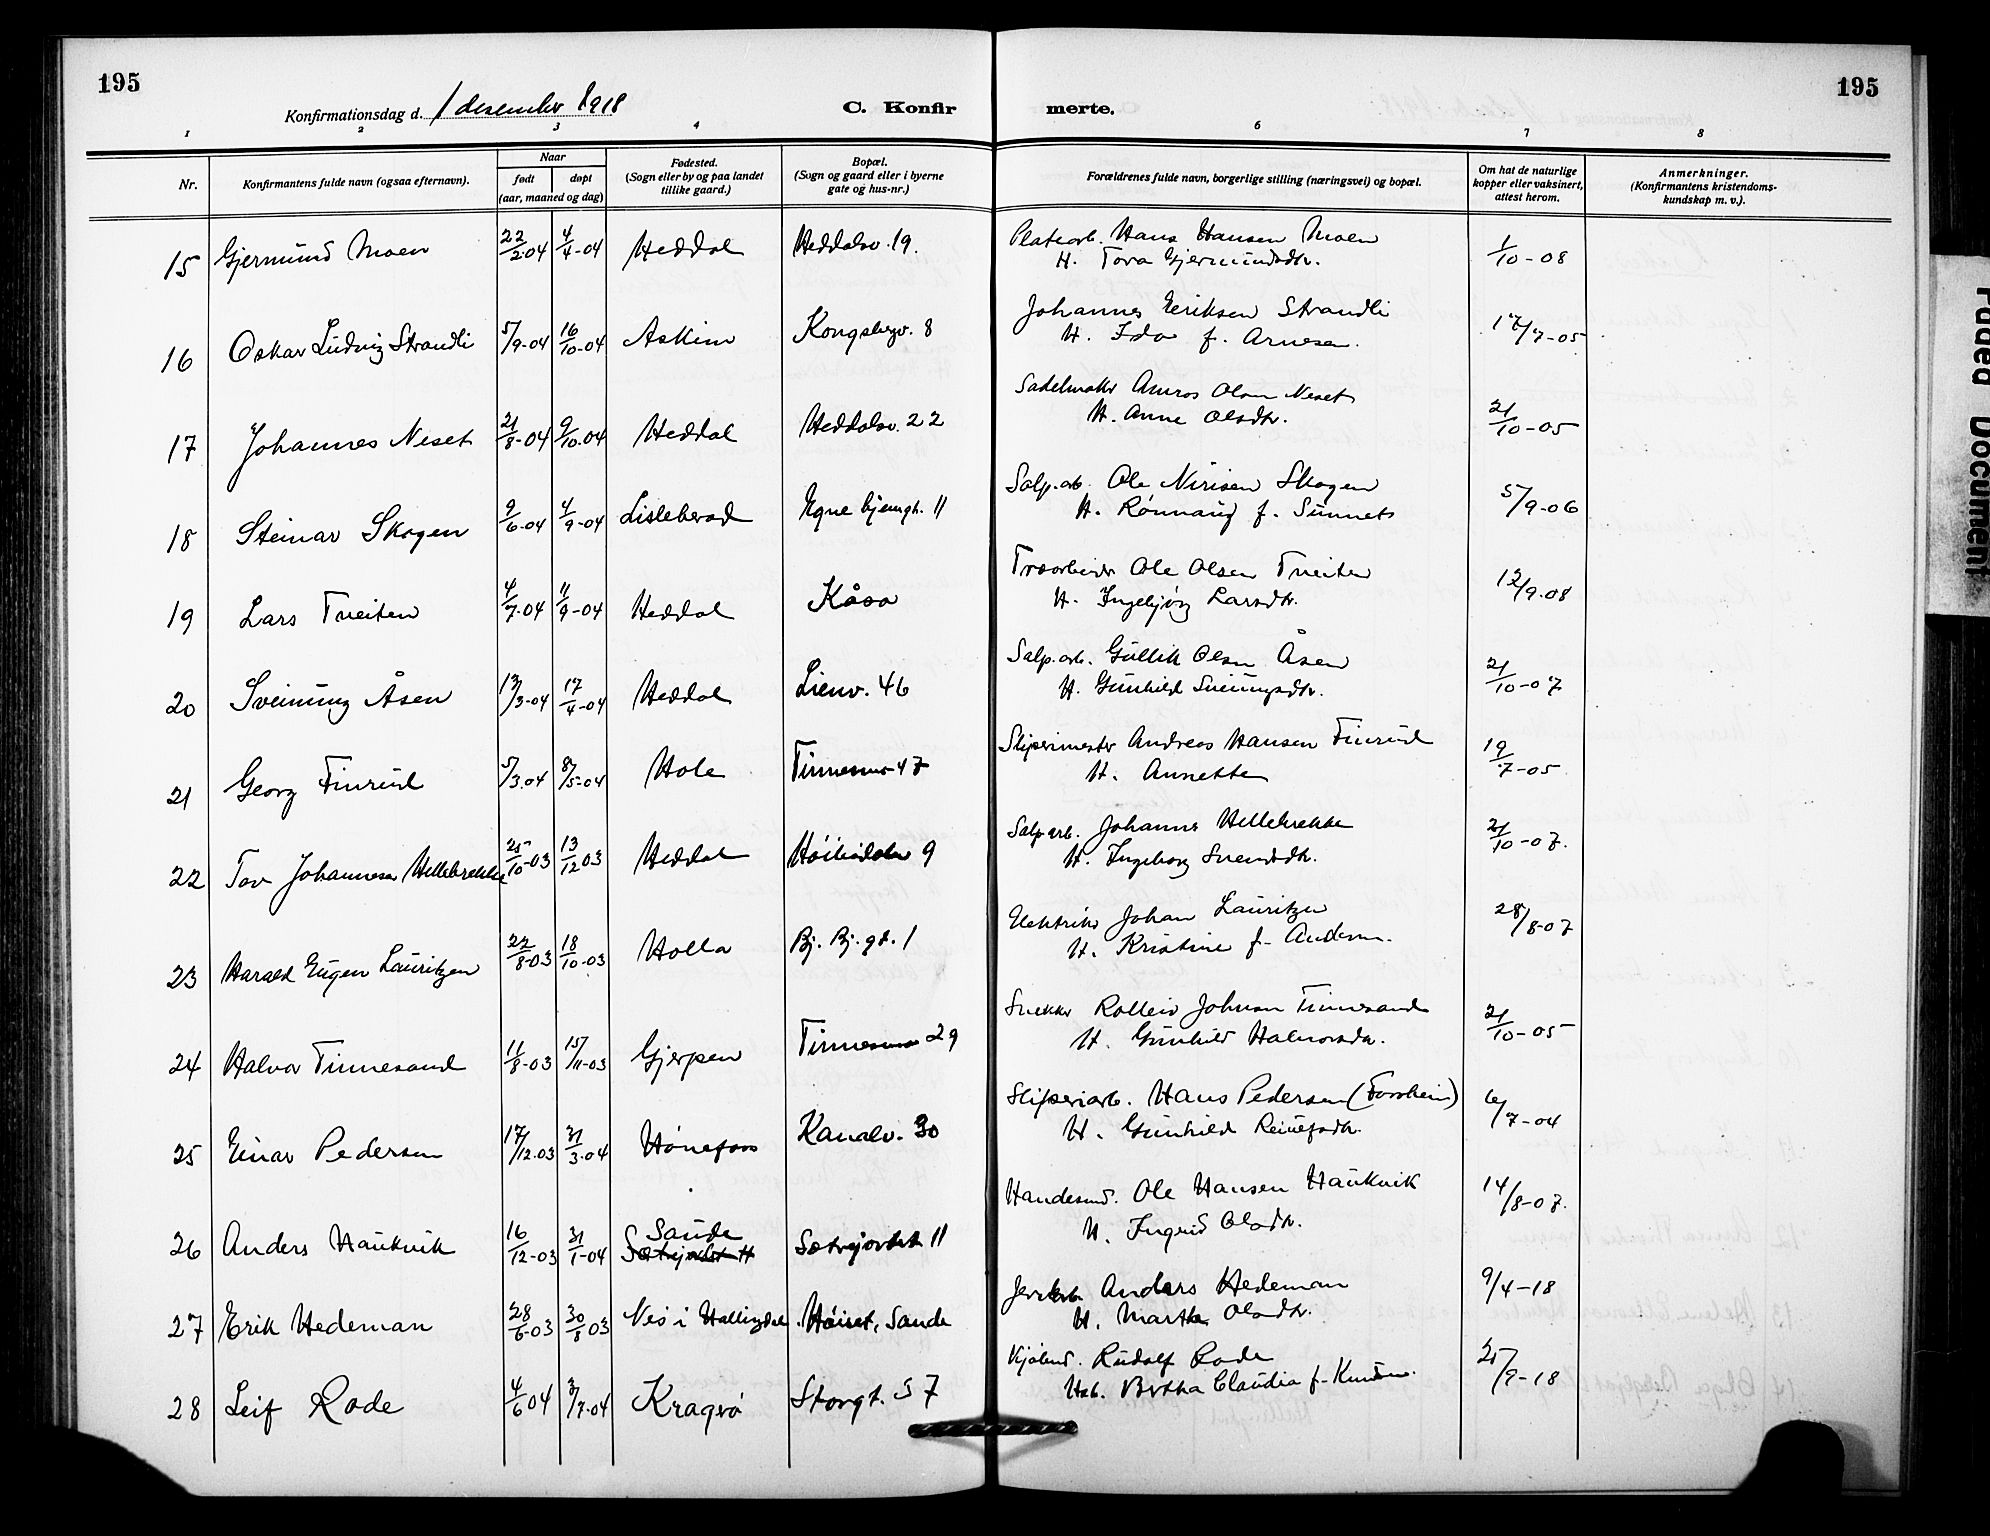 195
195
Konfirmationsdag d. 1 desember 1918
C. Konfir merte.
1 2 3 4 5 6 7 8
Nr.
Konfirmantens fulde navn (ogsaa efternavn).
Naar
født døpt
(aar, maaned og dag)
Fødested.
(Sogn eller by og paa landet
tillike gaard.)
Bopæl.
(Sogn og gaard eller i byerne
gate og hus-nr.)
Forældrenes fulde navn, borgerlige stilling (næringsvei) og bopæl.
Om hat de naturlige
kopper eller vaksinert,
attest herom.
Anmerkninger.
(Konfirmantens kristendoms-
kundskap m. v.).
15 Gjermund Moen 22/2-04 4/4-04 Heddal Heddalsv. 19. Hans Hansen Moen 1/10-08
H. Tora Gjermundsdtr.
16 Oskar Ludvig Strandli 5/9-04 16/10-04 Askim Kongsbergv. 8 Johannes Eriksen Strandli 17/7-05
H. Ida f. Arnesen.
17 Johannes Neset 21/8-04 9/10-04 Heddal Heddalsv. 22 Sadelmaker Olsen Neset 21/10-05
H. Anne Olsdtr.
18 Steinar Skogen 9/6-04 4/9-04 Lisleherad Egne hjemgt. 11 Salp.arb. Ole Nirisen Skogen 5/9-06
H. Rønnaug f. Sunnets
19 Lars Tveiten 4/7-04 11/9-04 Heddal Kåsa Træarbeider Ole Olsen Tveiten 12/9-08
H. Ingebjørg Larsdtr.
20 Sveinung Åsen 13/3-04 17/4-04 Heddal Lienv. 46 Salp.arb. Gullik Olsen Åsen 21/10-07
H. Gunhild Sveinungsdtr.
21 Georg Finrud 5/3-04 8/5-04 Hole Tinnesmo 47 Sliperimester Andreas Hansen Finrud 19/7-05
H. Annette
22 Tov Johannesen Hellebrekke 25/10-03 13/12 03 Heddal 9 Salp.arb. Johannes Hellebrekke 21/10-07.
H. Ingeborg Svendsdtr.
23 Harald Eugen Lauritzen 22/8-03 18/10-03 Holla Bj. Bj. gt. 1 Elektriker Johan Lauritzen 28/8-07
H. Kristine f. Andersen.
24 Halvor Tinnesand 11/8-03 15/11-03 Gjerpen Tinnesmo 29 Snekker Rolleiv Johnsen Tinnesand 21/10-05
H. Gunhild Halvorsdtr.
25 Einar Pedersen 17/12-03 31/3-04 Hønefoss Kanalv. 30 Sliperiarb. Hans Pedersen (Forsheim) 6/7-04
H. Gunhild
26 Anders Haukvik 16/12-03 31/1-04 Saude Sætrejordet 11 Sætrejordet 11 Handelsmd. Ole Hansen Haukvik 14/8-07.
H. Ingrid Olsdtr.
27 Erik Hedeman 28/6-03 30/8 03 Nes i Hallingdal Høiset, Sande Anders Hedeman 9/4-18
H. Marthe Olsdtr.
28 Leif Rode 4/6 04 3/7-04 Kragerø Storgt. 57 Kjøbmd. Rudolf Rode 25/9-18
Hst. Bertha Claudia f. Knudsen.
Faded Document